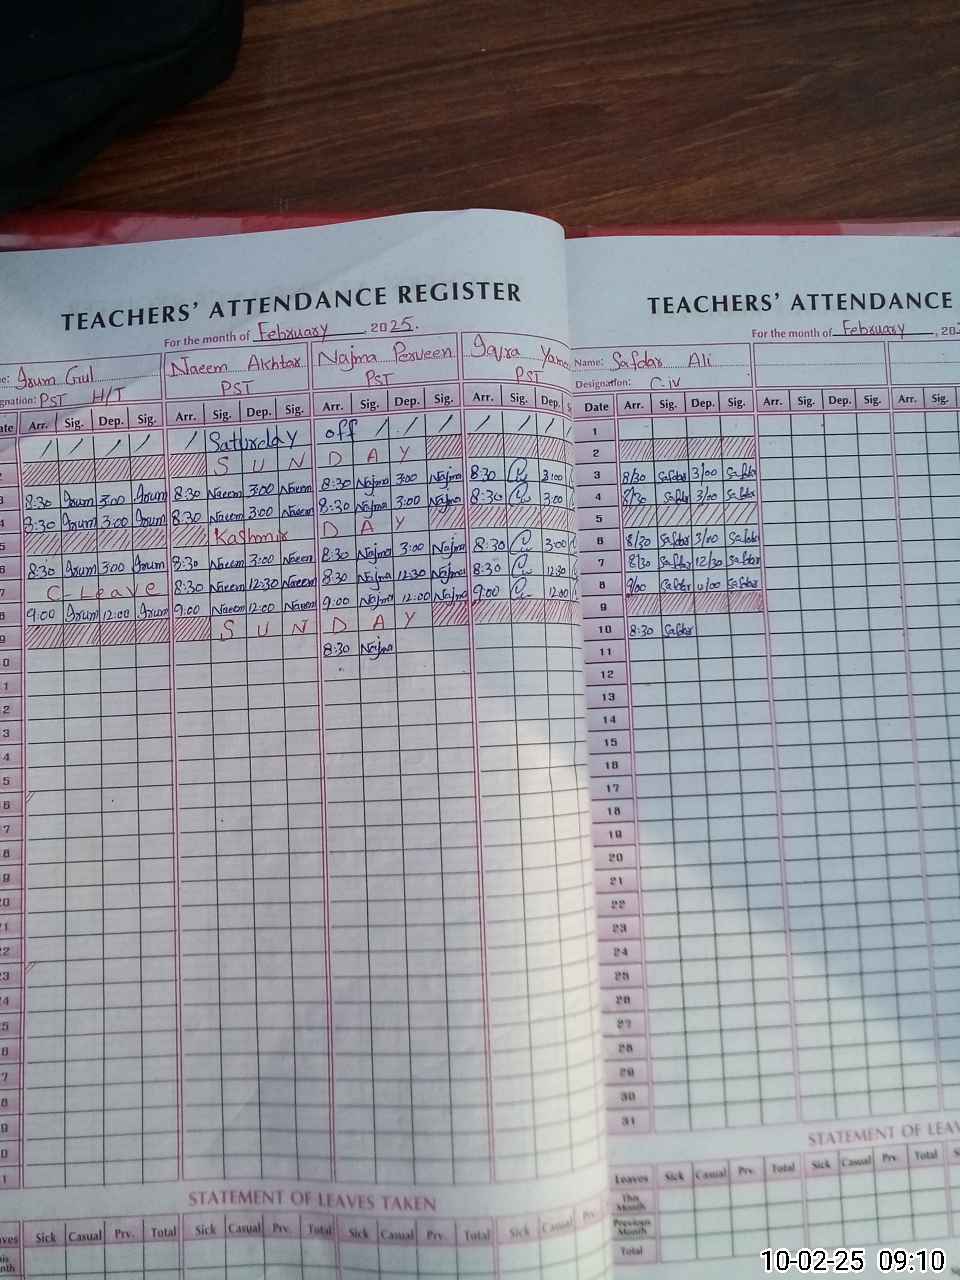 TEACHERS' ATTENDANCE REGISTER
For the month of February, 2025.
Irum Gul Naeem Akhtar Najma Perveen
PST H/T PST PST PST
Arr. Sig. Dep. Sig. Arr. Sig. Dep. Sig. Arr. Sig. Dep. Sig. Arr. Sig. Dep.
/ / / / / Saturday off / / / / / /
S U N D A Y
8:30 Irum 3:00 Irum 8:30 Naeem 3:00 Naeem 8:30 Najma 3:00 Najma 8:30 3:00
8:30 Irum 3:00 Irum 8:30 Naeem 3:00 Naeem 8:30 Najma 3:00 Najma 8:30 3:00
Kashmir D A Y
8:30 Irum 3:00 Irum 8:30 Naeem 3:00 Naeem 8:30 Najma 3:00 Najma 8:30 3:00
C-Leave 8:30 Naeem 12:30 Naeem 8:30 Najma 12:30 Najma 8:30 12:30
9:00 Irum 12:00 Irum 9:00 Naeem 12:00 Naeem 9:00 Najma 12:00 Najma 9:00 12:00
S U N D A Y
8:30 Najma
STATEMENT OF LEAVES TAKEN
Sick Casual Prv. Total Sick Casual Prv. Total Sick Casual Prv. Total Sick Casual Prv.
TEACHERS' ATTENDANCE
For the month of February, 20
Name: Safdar Ali
Designation: C iv
Date Arr. Sig. Dep. Sig. Arr. Sig. Dep. Sig. Arr. Sig.
1
2
3 8/30 Safdar 3/00 Safdar
4 8/30 Safdar 3/00 Safdar
5
6 8/30 Safdar 3/00 Safdar
7 8/30 Safdar 12/30 Safdar
8 9/00 Safdar Safdar
9
10 8:30 Safdar
11
12
13
14
15
16
17
18
19
20
21
22
23
24
25
26
27
28
29
30
31
STATEMENT OF LEAV
Leaves Sick Casual Prv. Total Sick Casual Prv. Total
This Month
Previous Month
Total
10-02-25 09:10